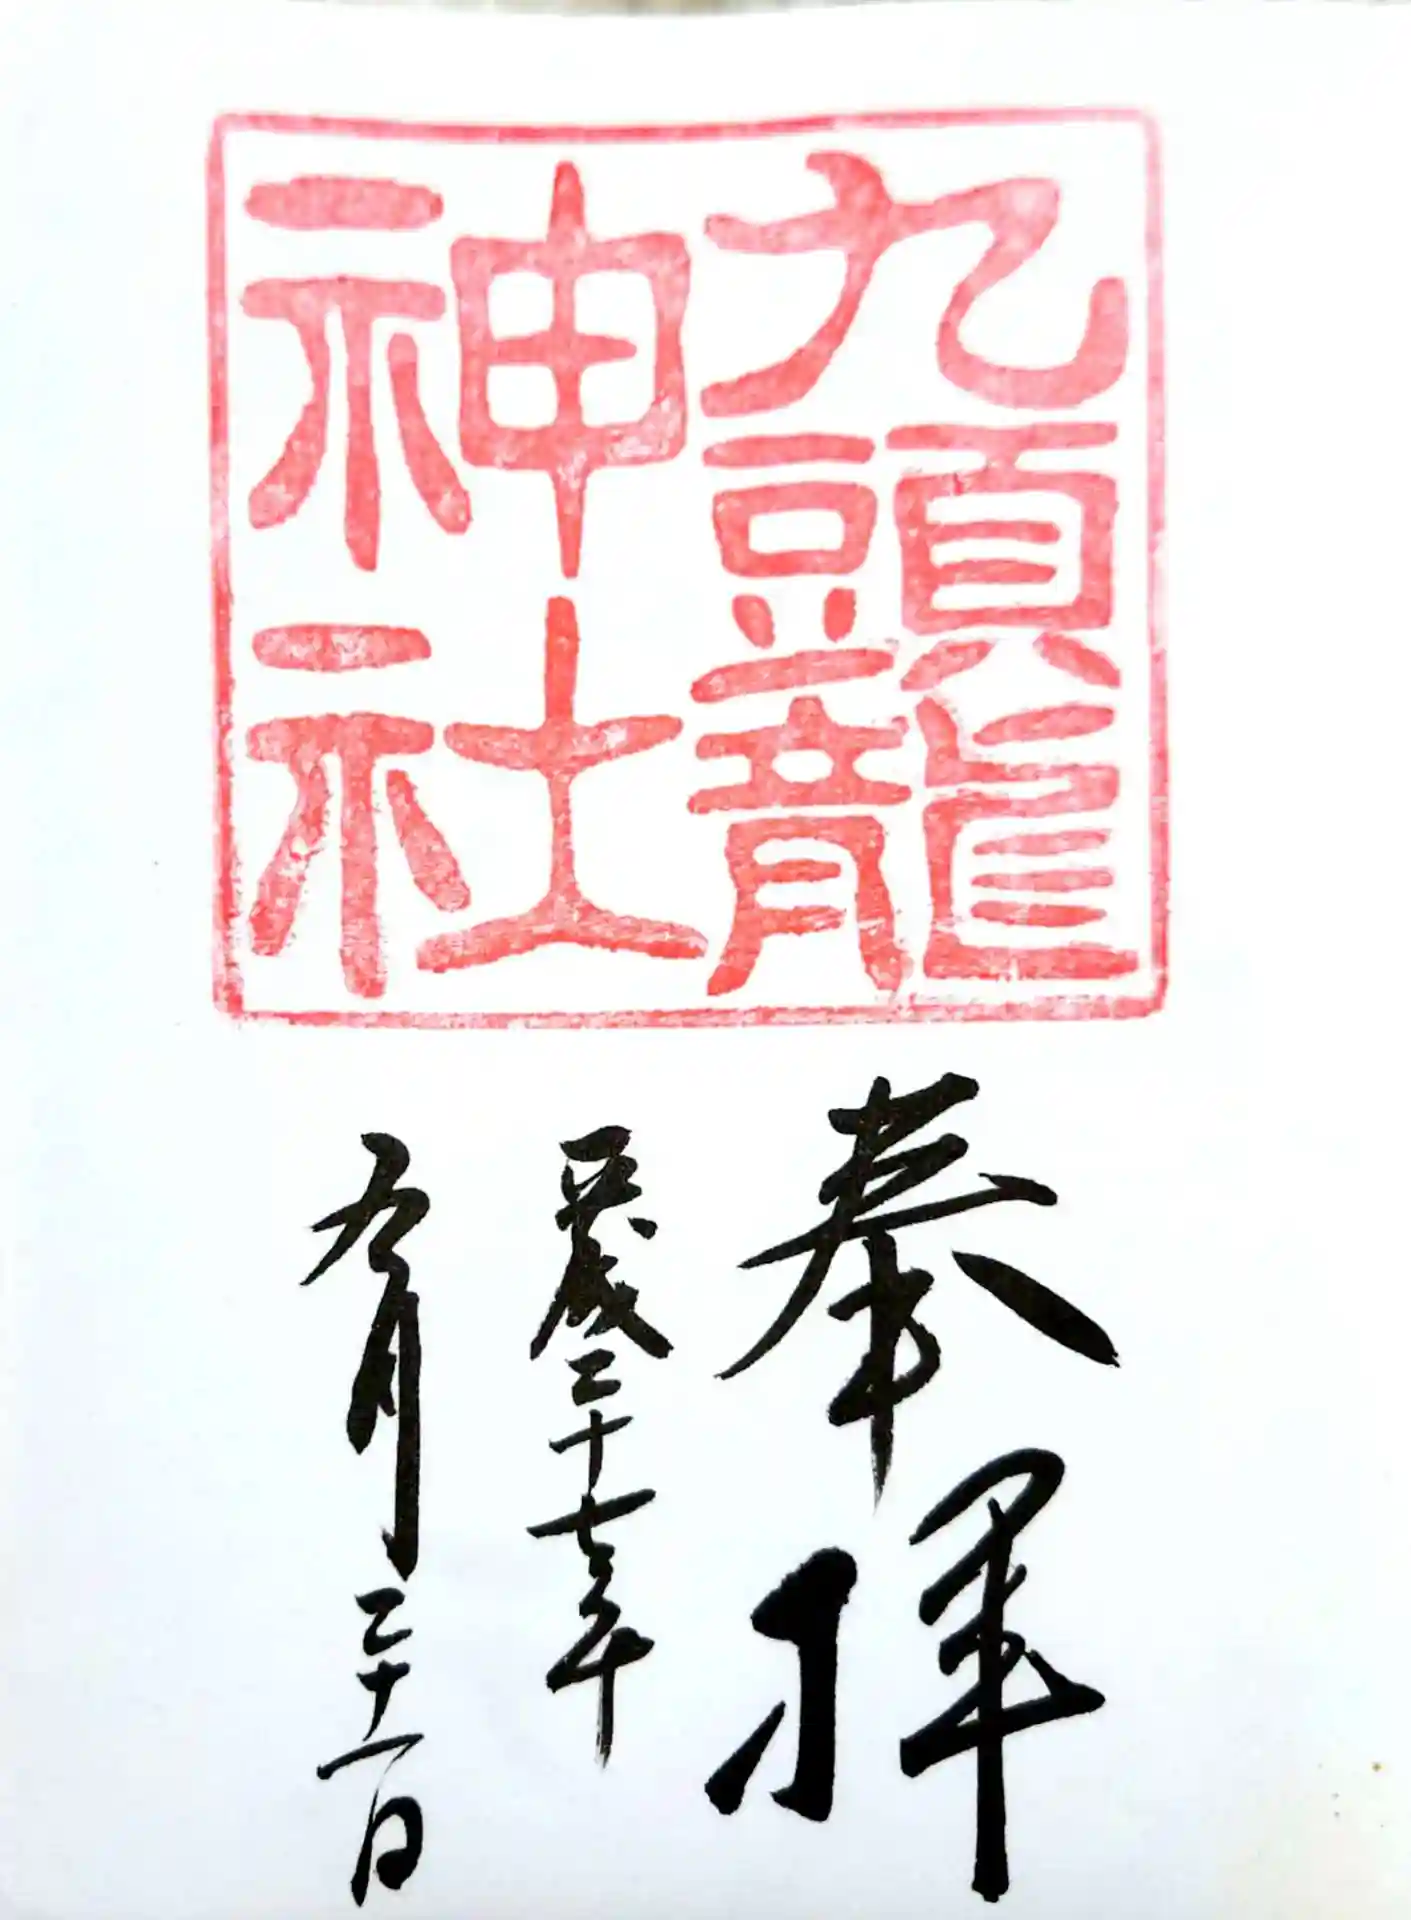 九頭龍
神社
奉拝
平成二十七年
九月二十一日